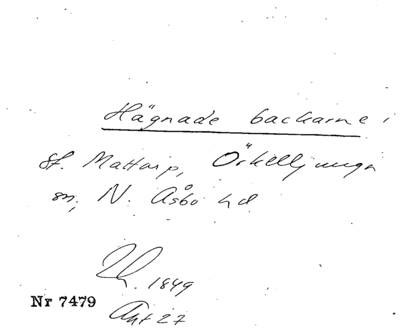 Hägnade backarne i
St. Mattarp, Örkelljunga
sn, N. Åsbo hd
1849
Nr 7479
Akt 27